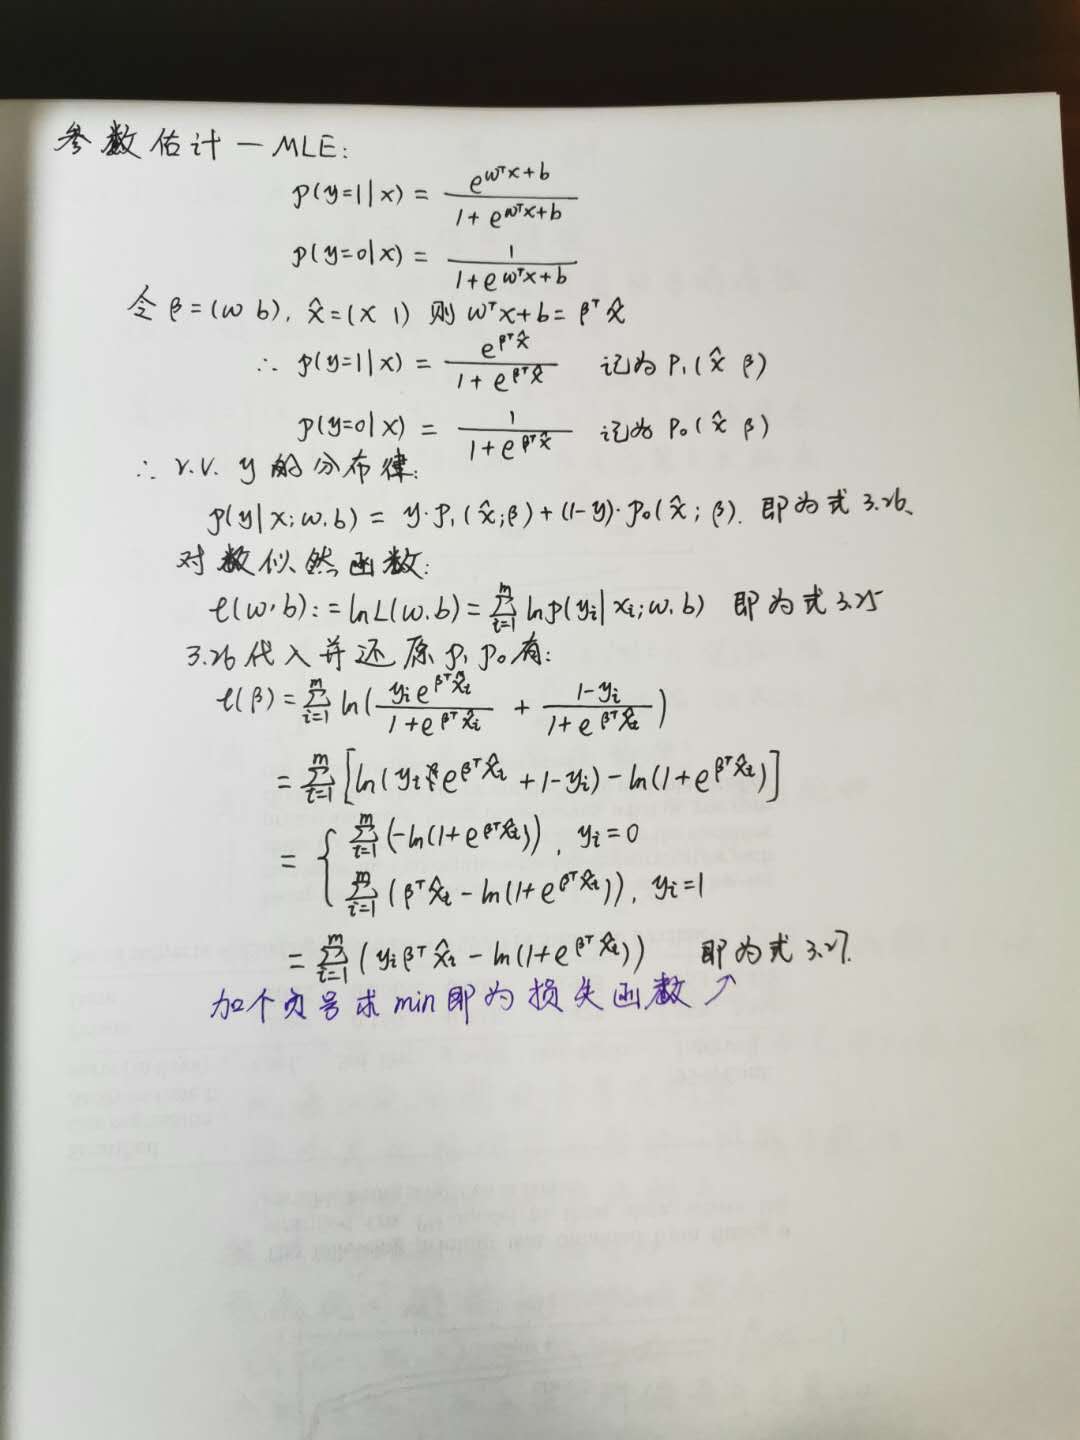 参数估计 — MLE:
p(y=1|x) = e^{wᵀx+b} / (1 + e^{wᵀx+b})
p(y=0|x) = 1 / (1 + e^{wᵀx+b})
令 β=(w b), x̂=(x 1) 则 wᵀx+b = βᵀx̂
∴ p(y=1|x) = e^{βᵀx̂} / (1 + e^{βᵀx̂}) 记为 P₁(x̂ β)
p(y=0|x) = 1 / (1 + e^{βᵀx̂}) 记为 P₀(x̂ β)
∴ r.v. y 的分布律:
p(y|x;w,b) = y·p₁(x̂;β) + (1-y)·p₀(x̂;β). 即为式 3.26.
对数似然函数:
ℓ(w,b) := ln L(w.b) = Σ_{i=1}^{m} ln p(yᵢ|xᵢ;w,b) 即为式 3.25
3.26 代入并还原 p₁ p₀ 有:
ℓ(β) = Σ_{i=1}^{m} ln( yᵢe^{βᵀx̂ᵢ} / (1 + e^{βᵀx̂ᵢ}) + (1-yᵢ) / (1 + e^{βᵀx̂ᵢ}) )
= Σ_{i=1}^{m} [ln(yᵢe^{βᵀx̂ᵢ} + 1-yᵢ) - ln(1 + e^{βᵀx̂ᵢ})]
= { Σ_{i=1}^{m} (-ln(1+e^{βᵀx̂ᵢ})), yᵢ=0
Σ_{i=1}^{m} (βᵀx̂ᵢ - ln(1+e^{βᵀx̂ᵢ})), yᵢ=1
= Σ_{i=1}^{m} (yᵢβᵀx̂ᵢ - ln(1+e^{βᵀx̂ᵢ})) 即为式 3.27.
加个负号求 min 即为损失函数 ↗